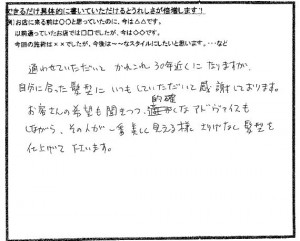 できるだけ具体的に書いていただけるとうれしさが倍増します!
例)お店に来る前は〇〇と思っていたのに、今は△△です。
以前通っていたお店では□□でしたが、今は◇◇です。
今回の施術は××でしたが、今後は〜〜なスタイルにしたいと思います。…など
通わせていただいて かれこれ30年近くになりますが、
自分に合った髪型に いつもしていただいて感謝しております。
お客さんの希望も聞きつつ、的確なアドヴァイスも
しながら、その人が一番美しく見える様 さりげなく髪型を
仕上げて下さいます。